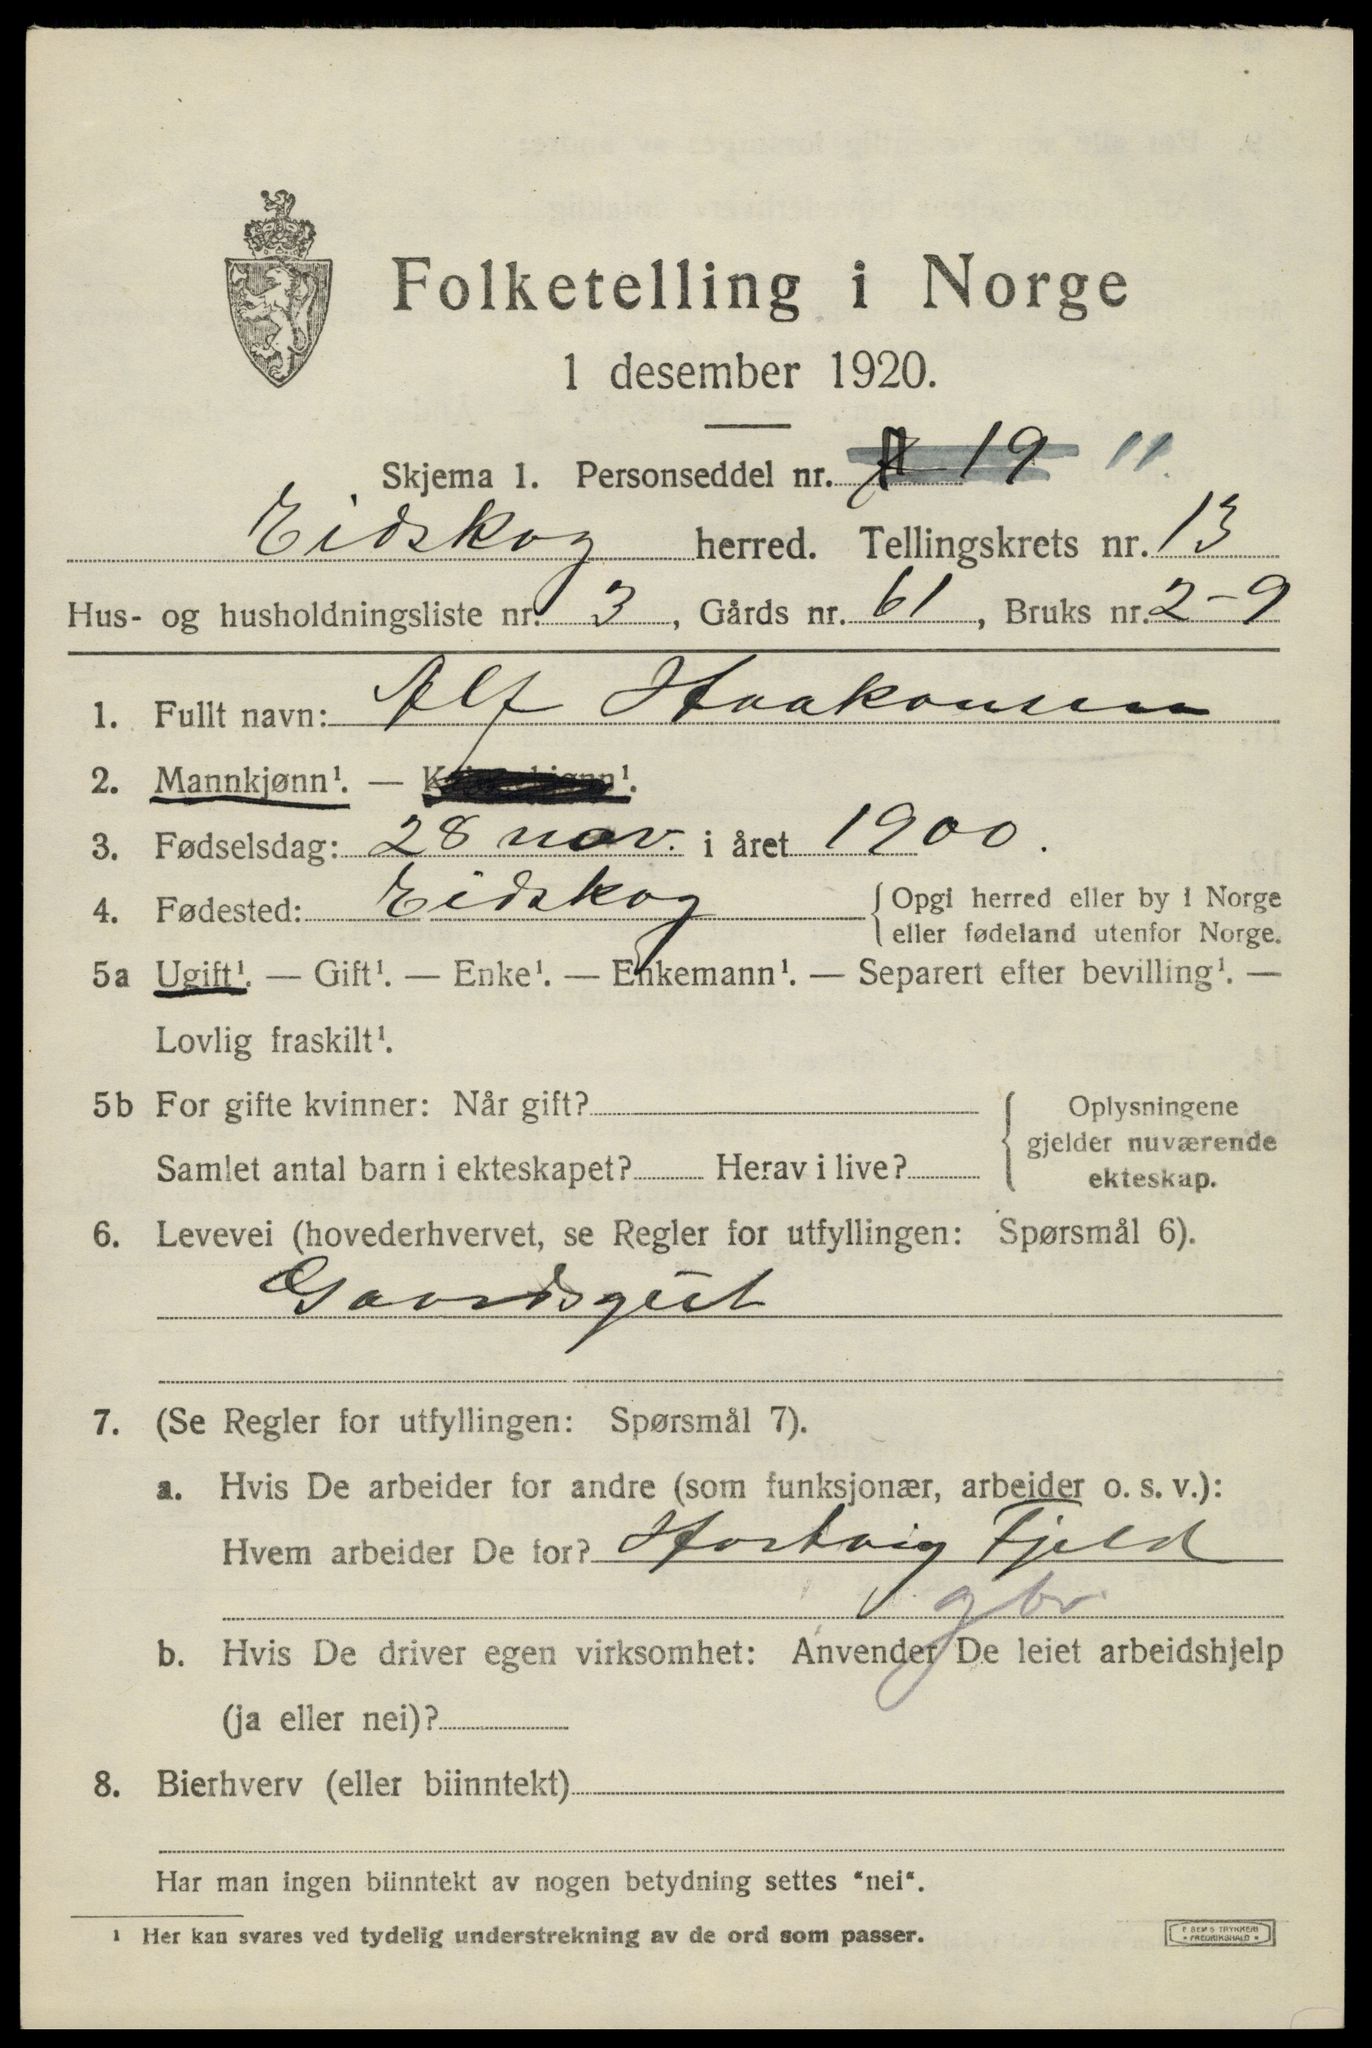 Folketelling i Norge
1 desember 1920.
Skjema 1. Personseddel nr. 19 11
Eidskog herred. Tellingskrets nr. 13
Hus- og husholdningsliste nr. 3, Gårds nr. 61, Bruks nr. 2-9
1. Fullt navn: Alf Haakonsen
2. Mannkjønn¹. — Kvinnekjønn¹.
3. Fødselsdag: 28 nov. i året 1900.
4. Fødested: Eidskog { Opgi herred eller by i Norge
eller fødeland utenfor Norge.
5a Ugift¹. — Gift¹. — Enke¹. — Enkemann¹. — Separert efter bevilling¹. —
Lovlig fraskilt¹.
5b For gifte kvinner: Når gift? Oplysningene
gjelder nuværende
Samlet antal barn i ekteskapet? Herav i live? ekteskap.
6. Levevei (hovederhvervet, se Regler for utfyllingen: Spørsmål 6).
Gaardsgut
7. (Se Regler for utfyllingen: Spørsmål 7).
a. Hvis De arbeider for andre (som funksjonær, arbeider o. s. v.):
Hvem arbeider De for? Hartvig Fjeld
gbr.
b. Hvis De driver egen virksomhet: Anvender De leiet arbeidshjelp
(ja eller nei)?
8. Bierhverv (eller biinntekt)
Har man ingen biinntekt av nogen betydning settes "nei".
¹ Her kan svares ved tydelig understrekning av de ord som passer.
TRYKKERI
FREDRIKSHALD